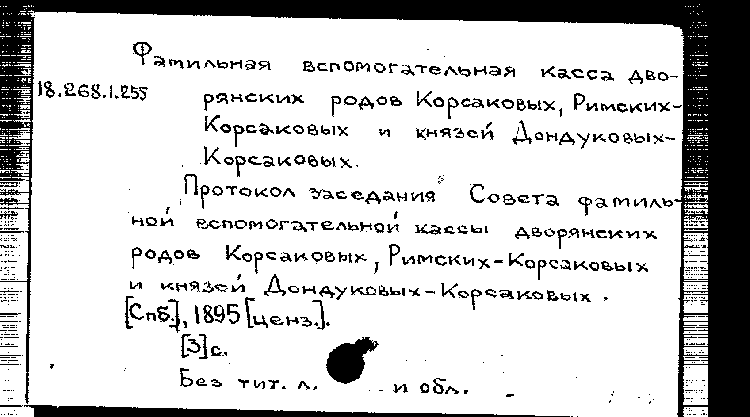 Фамильная вспомогательная касса дво-
18.268.1.255
рянских родов Корсаковых, Римских-
Корсаковых и князей Дондуковых-
Корсаковых.
Протокол заседания Совета фамиль-
ной вспомогательной кассы дворянских
родов Корсаковых, Римских-Корсаковых
и князей Дондуковых-Корсаковых.
[Спб.], 1895 [ценз.].
[3] с.
Без тит. л. и обл.